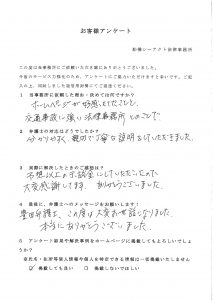 お客様アンケート
船橋シーアクト法律事務所
この度は当事務所にご依頼いただき誠にありがとうございました。
今後のサービス力強化のため、アンケートにご協力いただけますと幸いです。ご記入の上、同封しました返信用封筒にてご返信ください。
1 当事務所に依頼した理由・決め手は何ですか？
ホームページが好感もてたこと、
交通事故に強い法律事務所とのことで
2 弁護士の対応はどうでしたか？
分かりやすく、親切で丁寧な説明をしていただきました。
3 実際に解決したときのご感想は？
予想以上の示談金にしていただいたので
大変感謝してます。ありがとうございます。
4 最後に、弁護士へのメッセージをお願いします！
豊田弁護士、この度は大変お世話になりました。
本当にありがとうございました。
5 アンケート結果や解決事例をホームページに掲載してもよろしいでしょうか？
※氏名・住所等個人情報や個人を特定できる情報は一切掲載いたしません
☑ 掲載しても良い　□ 掲載しないでほしい